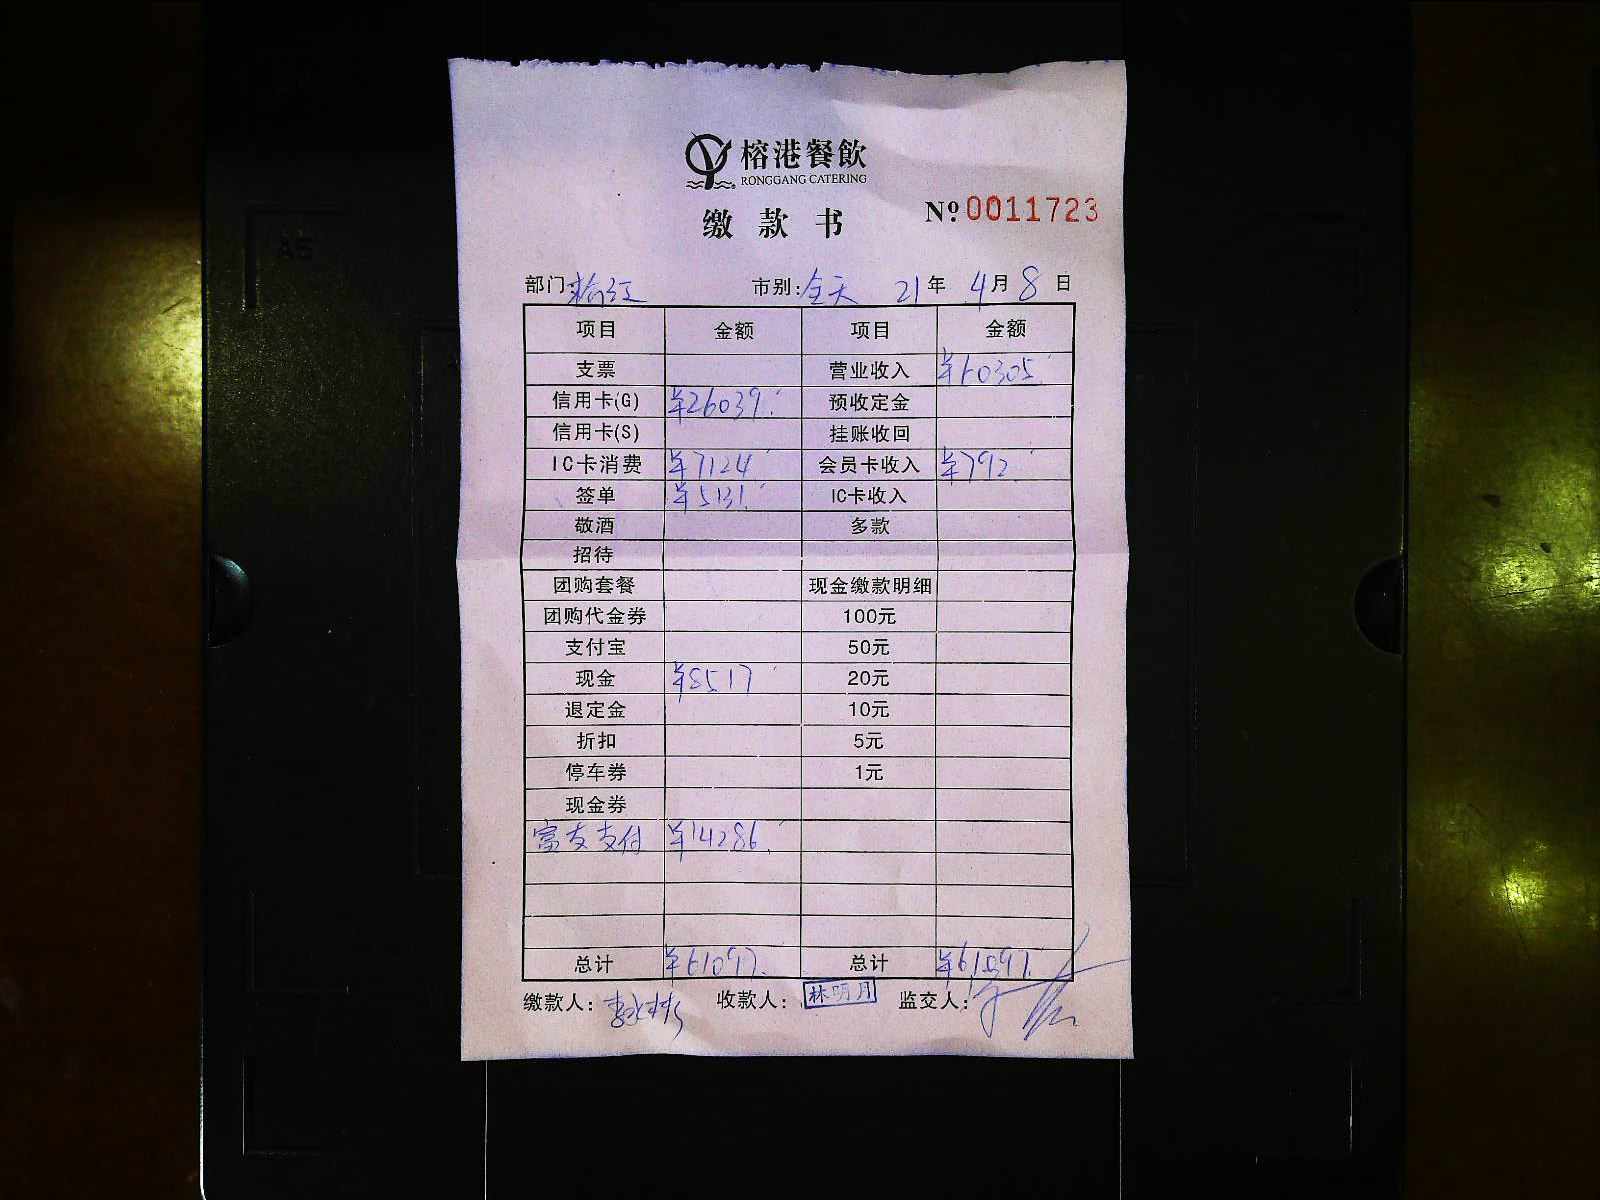 榕港餐飲
RONGGANG CATERING
缴款书 № 0011723
部门: 榕江 市别: 全天 21年 4月 8日
项目 金额 项目 金额
支票 营业收入 ¥60305.
信用卡(G) ¥26039. 预收定金
信用卡(S) 挂账收回
IC卡消费 ¥7124 会员卡收入 ¥792.
签单 ¥5131. IC卡收入
敬酒 多款
招待
团购套餐 现金缴款明细
团购代金券 100元
支付宝 50元
现金 ¥8517 20元
退定金 10元
折扣 5元
停车券 1元
现金券
富友支付 ¥14286.
总计 ¥61097. 总计 ¥61097.
缴款人: 收款人: 林明月 监交人:
A5